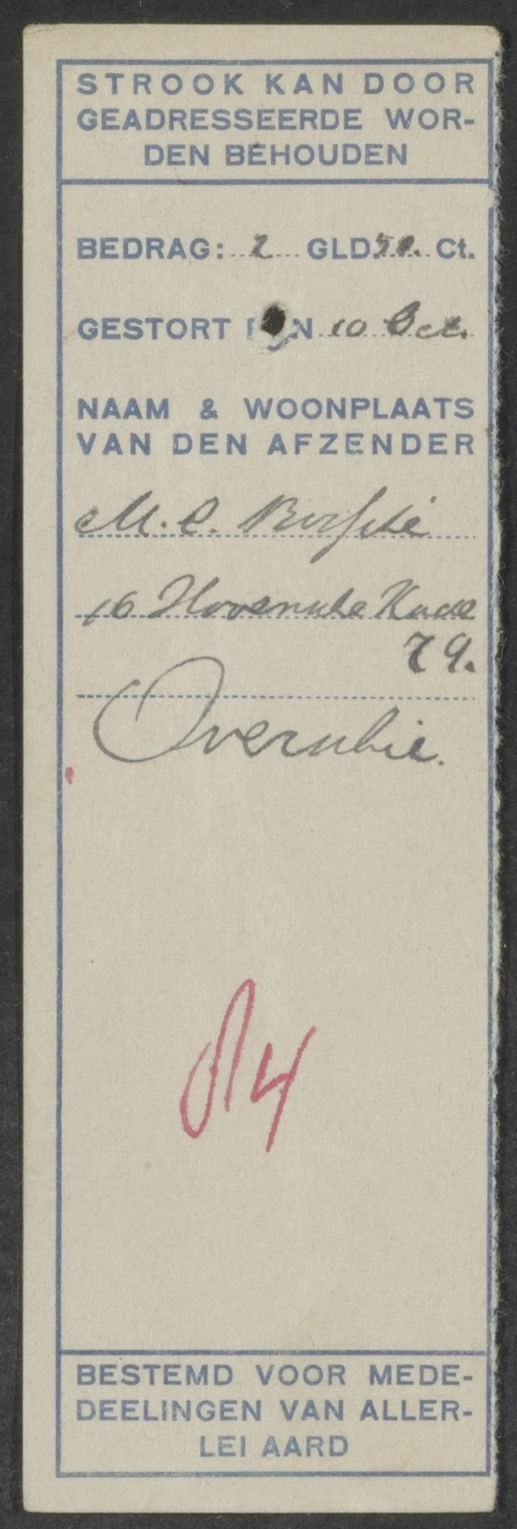 STROOK KAN DOOR
GEADRESSEERDE WOR-
DEN BEHOUDEN
BEDRAG: 2 GLD 50. Ct.
GESTORT N 10 Oct.
NAAM & WOONPLAATS
VAN DEN AFZENDER
M. C.
16 Kade
79.
Overschie.
4
BESTEMD VOOR MEDE-
DEELINGEN VAN ALLER-
LEI AARD